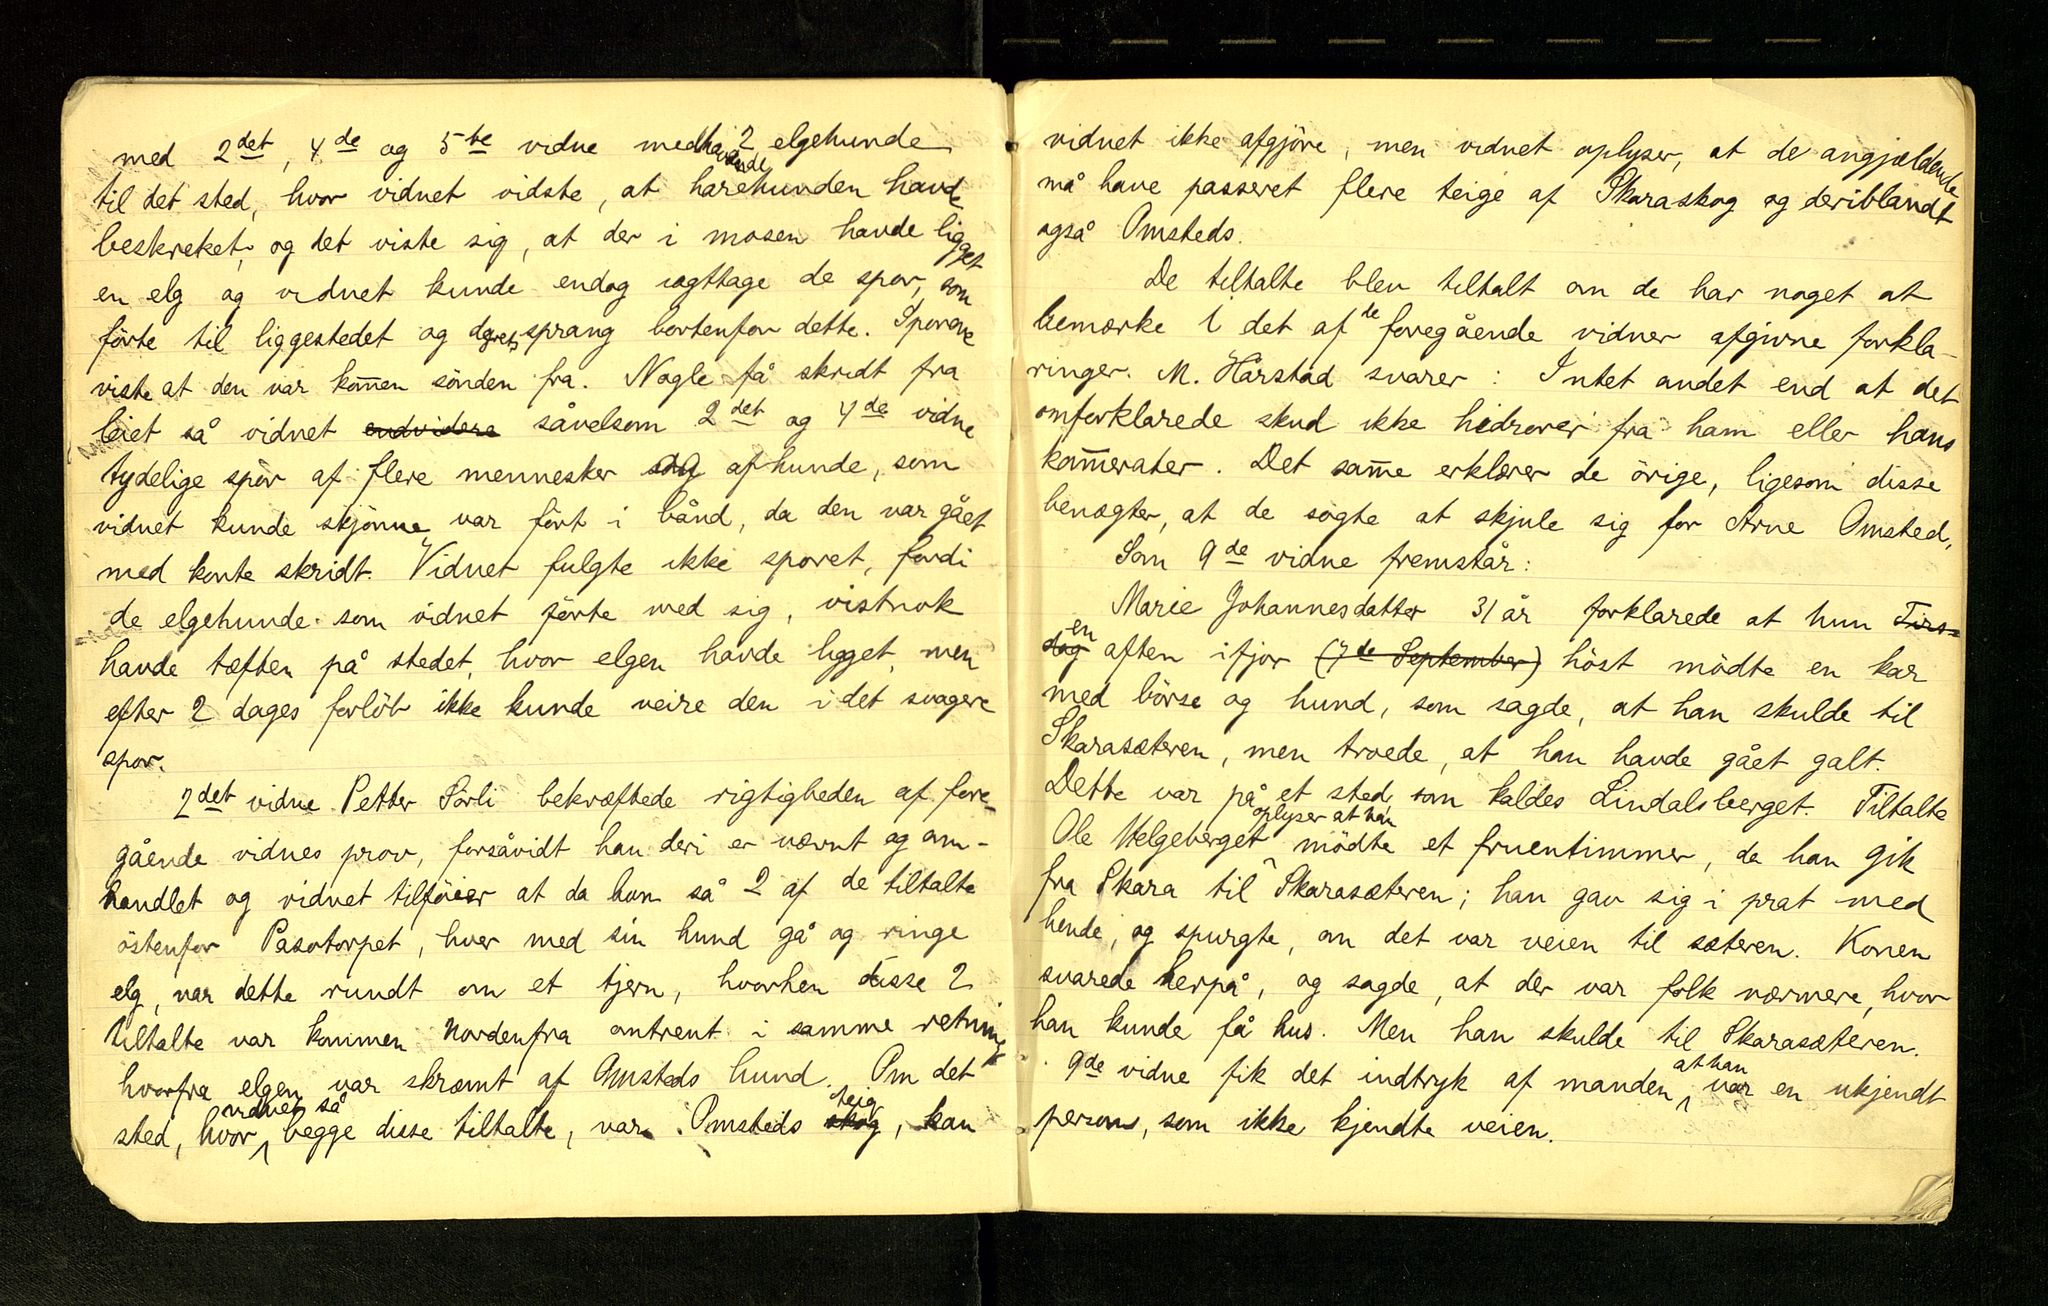 med 2det, 4de og 5te vidne medhavende 2 elgehunde
til det sted, hvor vidnet vidste, at harehunden havde
beskreket, og det viste sig, at der i mosen havde ligget
en elg og vidnet kunde endog iagttage de spor, som
förte til liggestedet og dyrets sprang bortenfor dette. Sporene
viste at den var kom̄en sönden fra. Nogle få skridt fra
leiet så vidnet endvidere såvelsom 2det og 4de vidne
tydelige spor af flere mennesker og af hunde, som
vidnet kunde skjönne var fört i bånd, da den var gået
med korte skridt. Vidnet fulgte ikke sporet, fordi
de elgehunde som vidnet förte med sig, vistnok
havde tæften på stedet, hvor elgen havde ligget, men
efter 2 dages forlöb ikke kunde veire den i det svagere
spor.
2det vidne Petter Sörli bekræftede rigtigheden af fore-
gående vidnes prov, forsåvidt han deri er nævnt og om-
handlet og vidnet tilföier at da han så 2 af de tiltalte
östenfor Pasotorpet, hver med sin hund gå og ringe
elg, var dette rundt om et tjern, hvorhen disse 2
tiltalte var kommen nordenfra omtrent i samme retning
hvorfra elgen var skræmt af Omsteds hund. Om det
sted, hvor vidnet så begge disse tiltalte, var Omsteds skog teig, kan
vidnet ikke afgjöre, men vidnet oplyser, at de angjældende
må have passeret flere teige af Skaraskog og deriblandt
også Omsteds.
De tiltalte blev tiltalt om de har noget at
bemærke i det af de foregående vidner afgivne forkla-
ringer. M. Hårstad svarer: Intet andet end at det
omforklarede skud ikke hidrörer fra ham eller hans
kam̄erater. Det sam̄e erklærer de örige, ligesom disse
benægter, at de sögte at skjule sig for Arne Omsted,
Som 9de vidne fremstår:
Marie Johannesdatter 31 år forklarede at hun Tirs-
dag en aften ifjor (7de September) höst mödte en kar
med börse og hund, som sagde, at han skulde til
Skarasæteren, men troede, at han havde gået galt.
Dette var på et sted, som kaldes Lindalsberget. Tiltalte
Ole Helgeberget oplyser at han mödte et fruentimmer, da han gik
fra Skara til Skarasæteren; han gav sig i prat med
hende, og spurgte, om det var veien til sæteren. Konen
svarede herpå, og sagde, at der var folk nærmere, hvor
han kunde få hus. Men han skulde til Skarasæteren.
9de vidne fik det indtryk af manden at han var en ukjendt
person, som ikke kjendte veien.